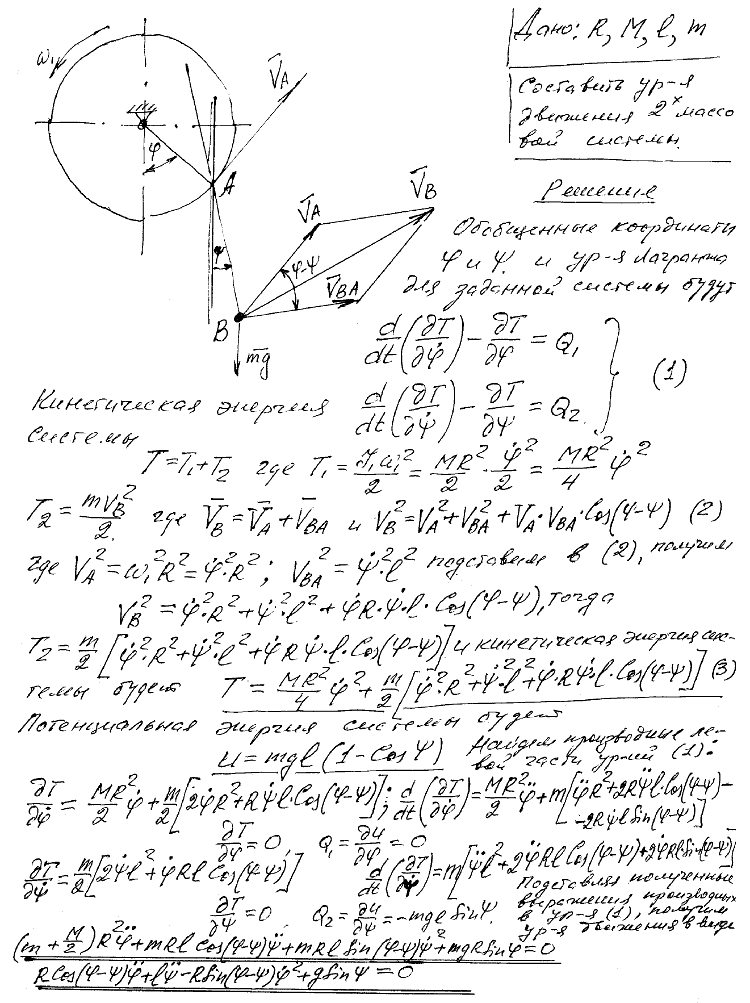 Дано: R, M, l, m
Составить ур-я
движения 2ˣ массо
вой системы.
Решение
ω₁
φ
A
V̄_A
V̄_A
V̄_B
φ-ψ
V̄_BA
ψ
B
m̄g
Обобщенные координаты
φ и ψ и ур-я Лагранжа
для заданной системы будут
d/dt(∂T/∂φ̇) - ∂T/∂φ = Q₁
d/dt(∂T/∂ψ̇) - ∂T/∂ψ = Q₂ } (1)
Кинетическая энергия
системы
T = T₁ + T₂ где T₁ = J₁ω₁²/2 = MR²/2 · φ̇²/2 = MR²/4 φ̇²
T₂ = mV_B²/2 где V̄_B = V̄_A + V̄_BA и V_B² = V_A² + V_BA² + V_A·V_BA·Cos(φ-ψ) (2)
где V_A² = ω₁²R² = φ̇²·R²; V_BA² = ψ̇²·l² подставим в (2), получим
V_B² = φ̇²·R² + ψ̇²·l² + φ̇R·ψ̇·l·Cos(φ-ψ), тогда
T₂ = m/2 [φ̇²·R² + ψ̇²·l² + φ̇Rψ̇·l·Cos(φ-ψ)] и кинетическая энергия сис-
темы будет T = MR²/4 φ̇² + m/2 [φ̇²·R² + ψ̇²·l² + φ̇·Rψ̇·l·Cos(φ-ψ)] (3)
Потенциальная энергия системы будет
u = mgl (1 - Cosψ) Найдем производные ле-
вой части ур-ий (1):
∂T/∂φ̇ = MR²/2 φ̇ + m/2[2φ̇R² + Rψ̇l·Cos(φ-ψ)]; d/dt(∂T/∂φ̇) = MR²/2 φ̈ + m[φ̈R² + 2Rψ̈l·Cos(φ-ψ) -
- 2Rψ̇lSin(φ-ψ)]
∂T/∂φ = 0, Q₁ = ∂u/∂φ = 0
∂T/∂ψ̇ = m/2[2ψ̇l² + φ̇Rl Cos(φ-ψ)] d/dt(∂T/∂ψ̇) = m[ψ̈l² + 2φ̈RlCos(φ-ψ) + 2φ̇RlSin(φ-ψ)]
∂T/∂ψ = 0, Q₂ = ∂u/∂ψ = -mglSinψ.
Подставляя полученные
выражения производных
в ур-я (1), получим
ур-я движения в виде
(m + M/2)R²φ̈ + mRl Cos(φ-ψ)ψ̈ + mRl Sin(φ-ψ)ψ̇² + mgRSinφ = 0
RCos(φ-ψ)φ̈ + lψ̈ - RSin(φ-ψ)φ̇² + gSinψ = 0